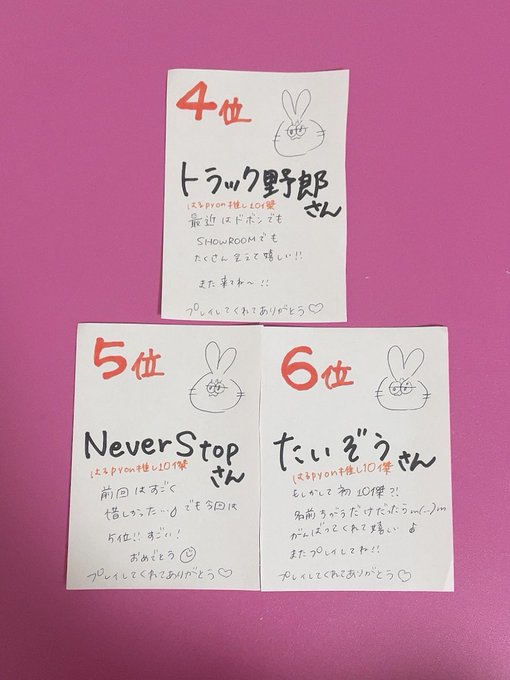 4位
トラック野郎
さん
はるpyon推し10傑
最近はドボンでも
SHOWROOMでも
たくさん会えて嬉しい!!
また来てね〜!!
プレイしてくれてありがとう♡
5位
NeverStop
さん
はるpyon推し10傑
前回はすごく
惜しかった…でも今回は
5位!!すごい!
おめでとう☺
プレイしてくれてありがとう♡
6位
たいぞう
さん
はるpyon推し10傑
もしかして初10傑?!
名前ちがうだけだったらm(_ _)m
がんばってくれて嬉しい♪
またプレイしてね!!
プレイしてくれてありがとう♡